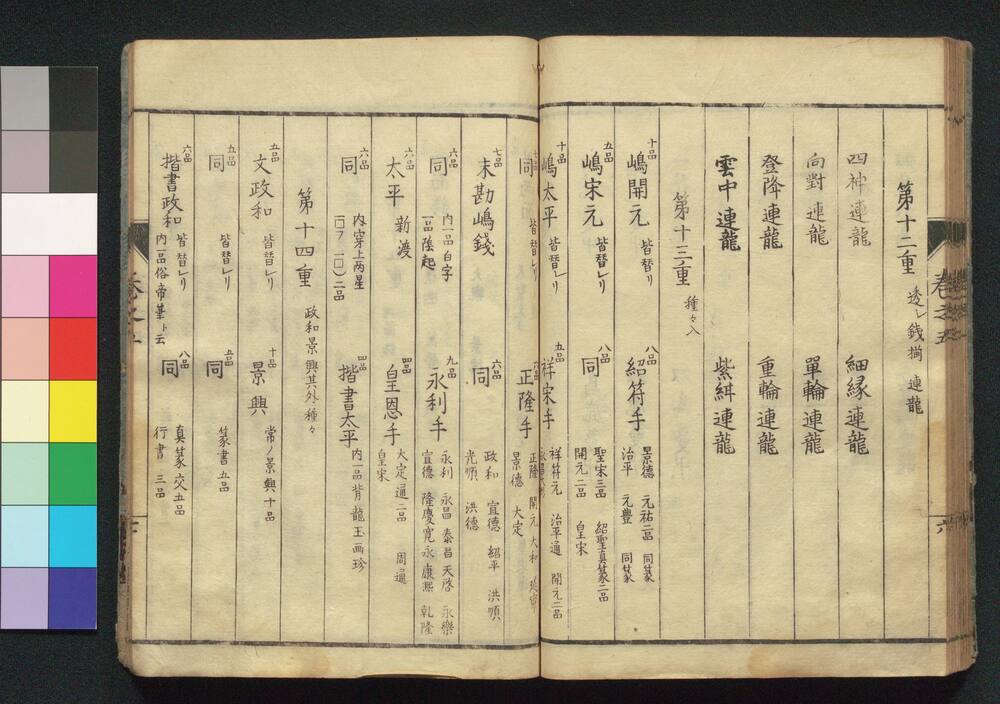 第十二重 透シ銭揃 連龍
四神連龍 細縁連龍
向對連龍 單輪連龍
登降連龍 重輪連龍
雲中連龍 紫紐連龍
第十三重 種々入
十品 嶋開元 皆替リ 八品 紹符手 景德 元祐二品 同篆
治平 元豊 同篆
五品 嶋宋元 皆替レリ 八品 同 聖宋三品 紹聖真篆二品
開元二品 皇宋
十品 嶋太平 皆替レリ 五品 祥宋手 祥符元 治平通 開元二品
同 皆替レリ 正隆手 正隆 開元 大和
景德 大定
七品 末勘嶋錢 六品 同 政和 宣德 紹平 洪順
光順 洪德
六品 同 内一品白字 九品 永利手 永利 永昌 泰昌 天啓 永樂
一品陰起 宣德 隆慶 寛永 康熙 乾隆
六品 太平 新渡 四品 皇恩手 大定通二品 周通
皇宋
六品 同 内穿上两星 四品 揩書太平 内一品背龍玉画珍
二品
第十四重 政和景興其外種々
五品 文政和 皆替レリ 十品 景興 常ノ景興十品
五品 同 皆替レリ 五品 同 篆書五品
六品 揩書政和 皆替レリ 八品 同 真篆交五品
内一品俗帝筆ト云 行書三品
卷之五
六